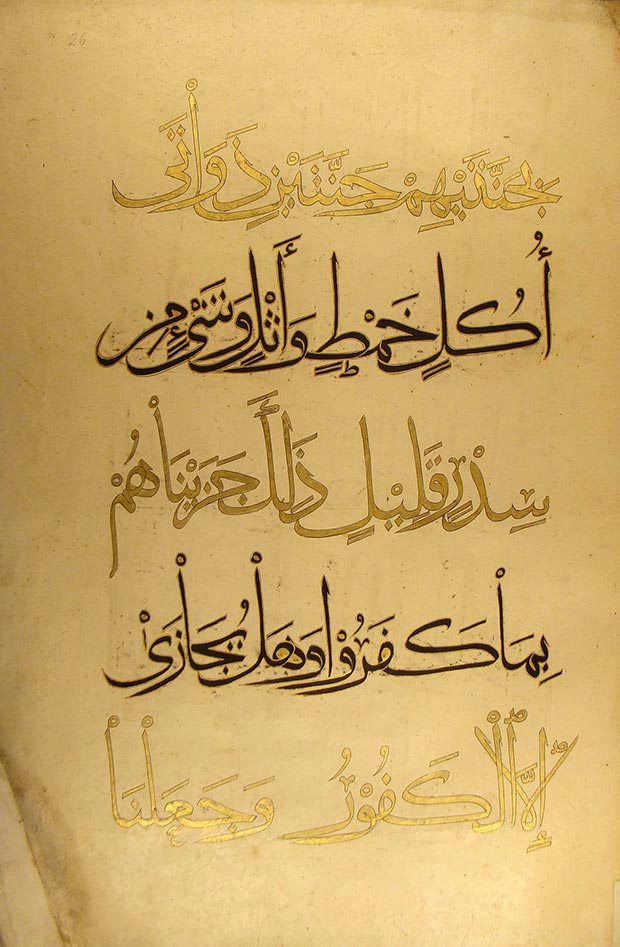 26
بِجَنَّتَيْهِمْ جَنَّتَيْنِ ذَوَاتَىْ
أُكُلٍ خَمْطٍ وَأَثْلٍ وَشَىْءٍ مِنْ
سِدْرٍ قَلِيْلٍ ذَلِكَ جَزَيْنَاهُمْ
بِمَا كَفَرُوْا وَهَلْ يُجَازَىٰ
إِلَّا الْكَفُوْرُ وَجَعَلْنَا